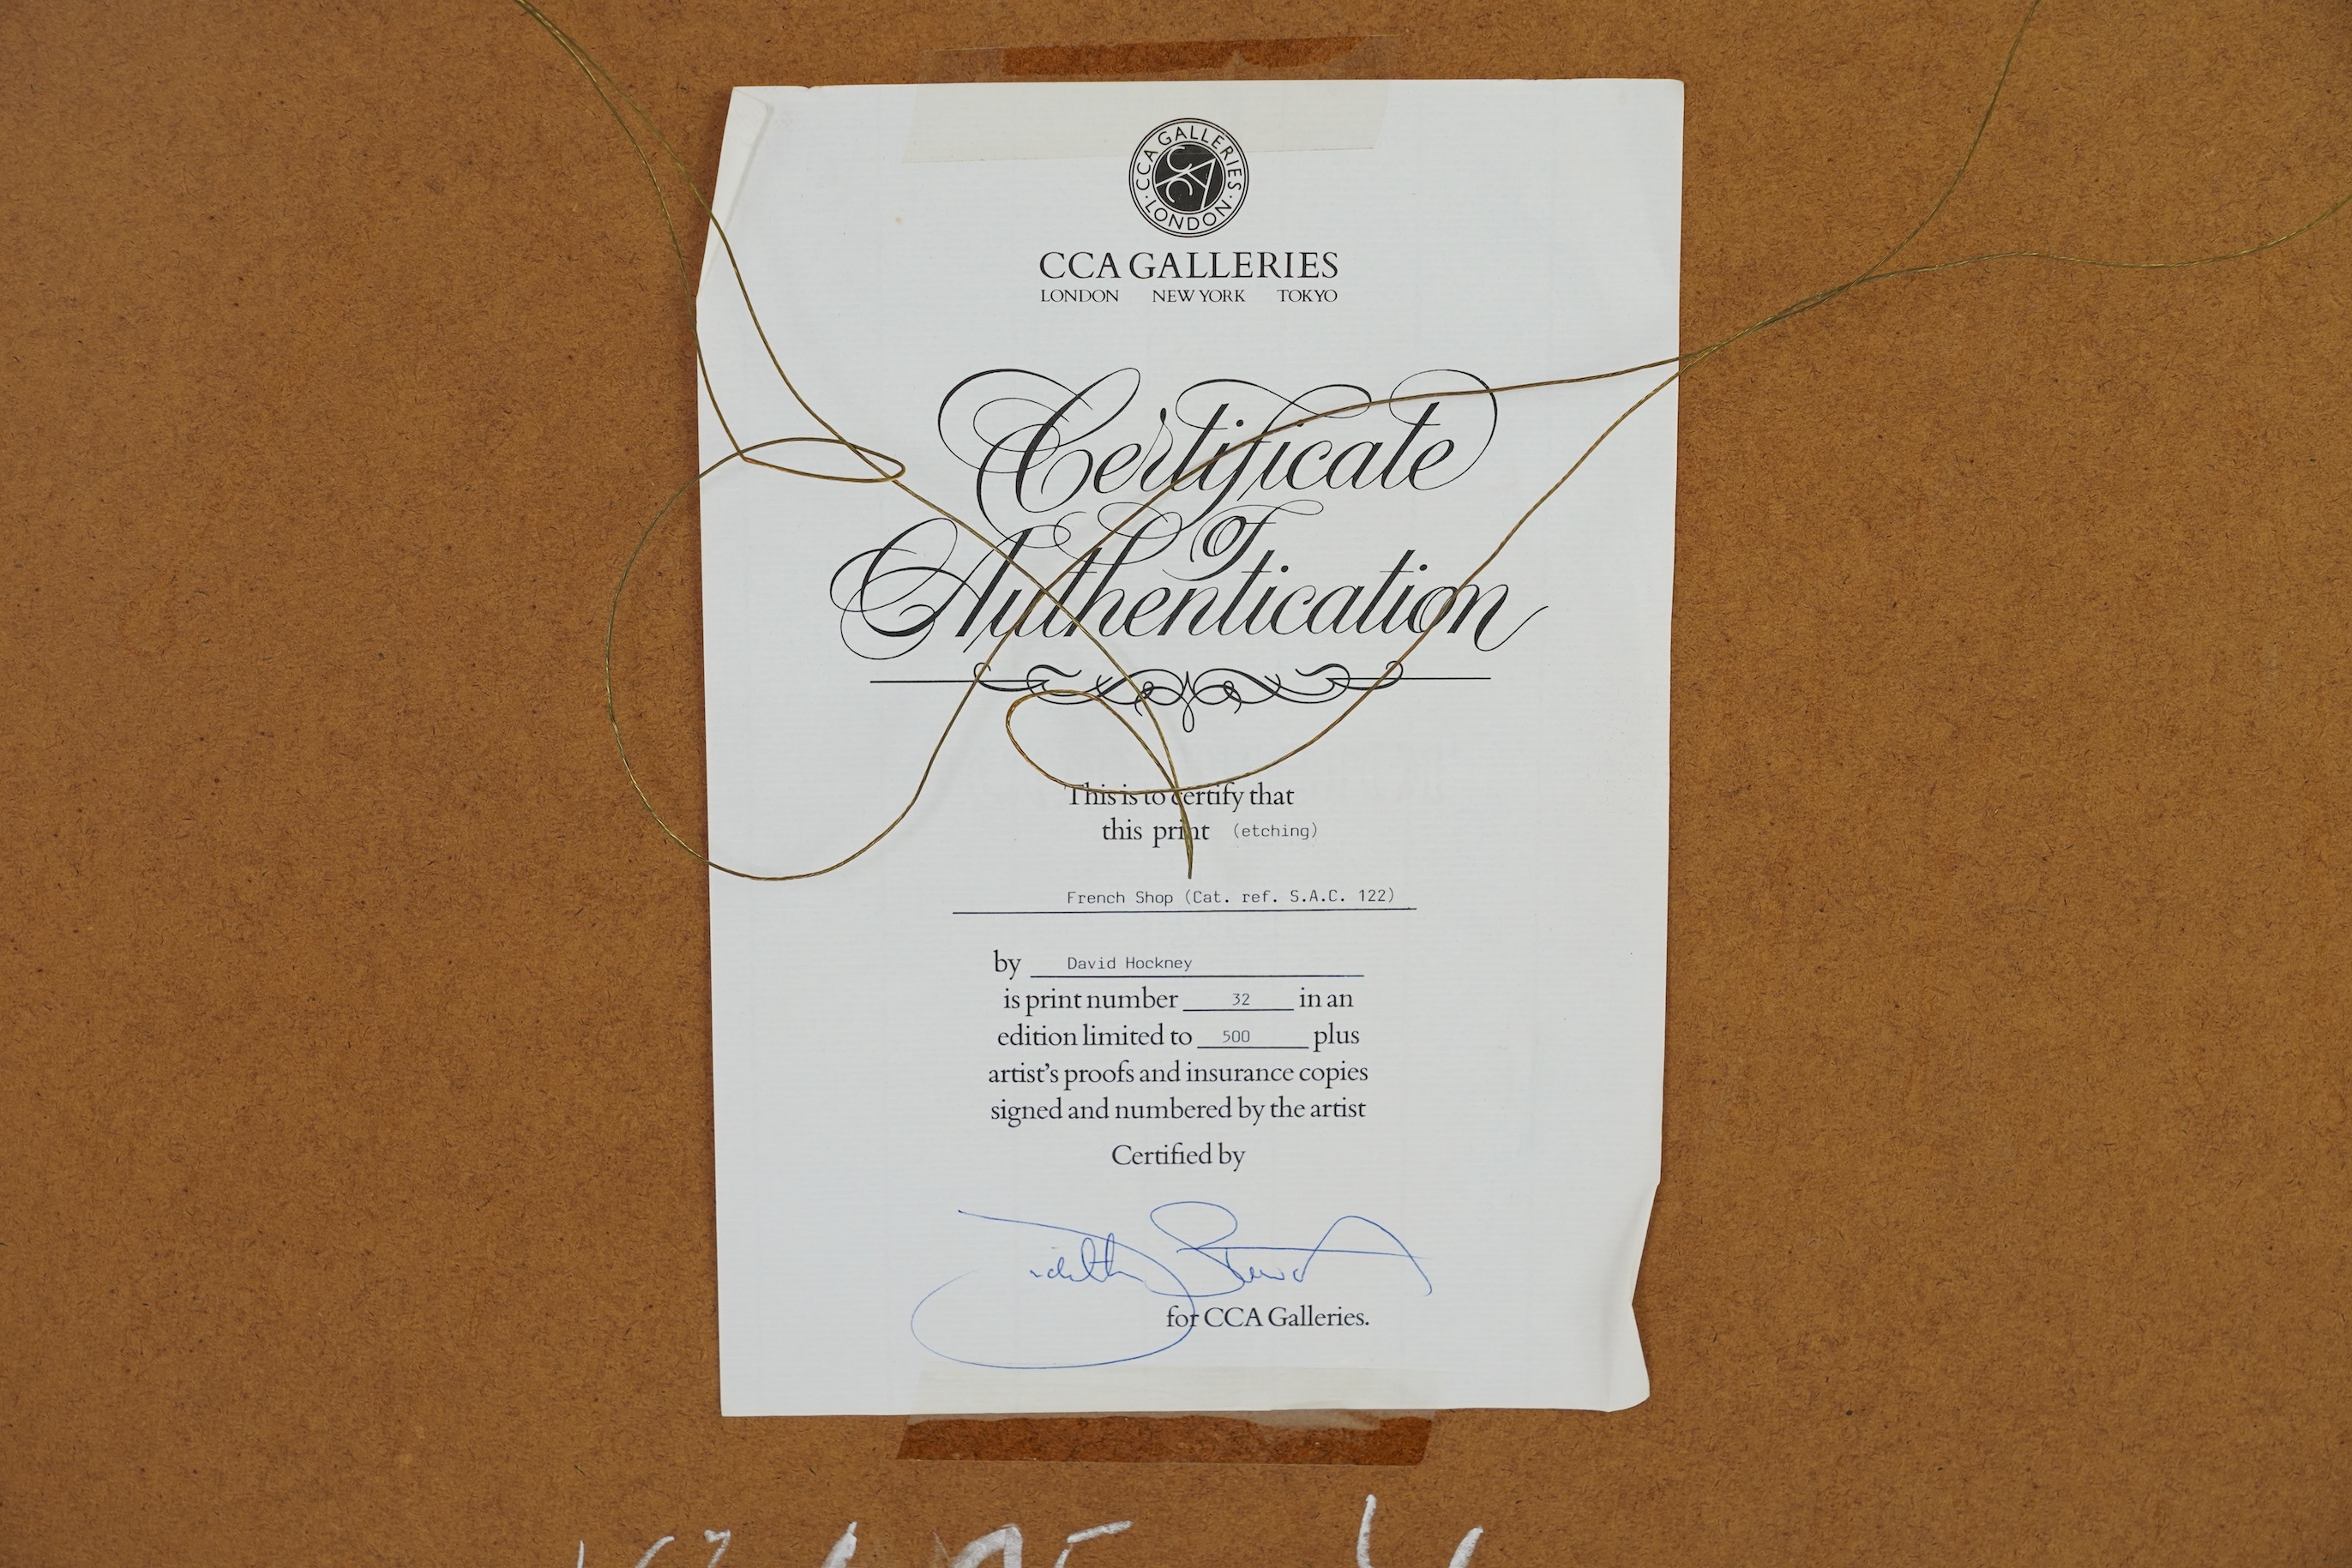 CCA GALLERIES · LONDON ·
CCA
CCA GALLERIES
LONDON NEW YORK TOKYO
Certificate
of
Authentication
This is to certify that
this print (etching)
French Shop (Cat. ref. S.A.C. 122)
by David Hockney
is print number 32 in an
edition limited to 500 plus
artist's proofs and insurance copies
signed and numbered by the artist
Certified by
for CCA Galleries.